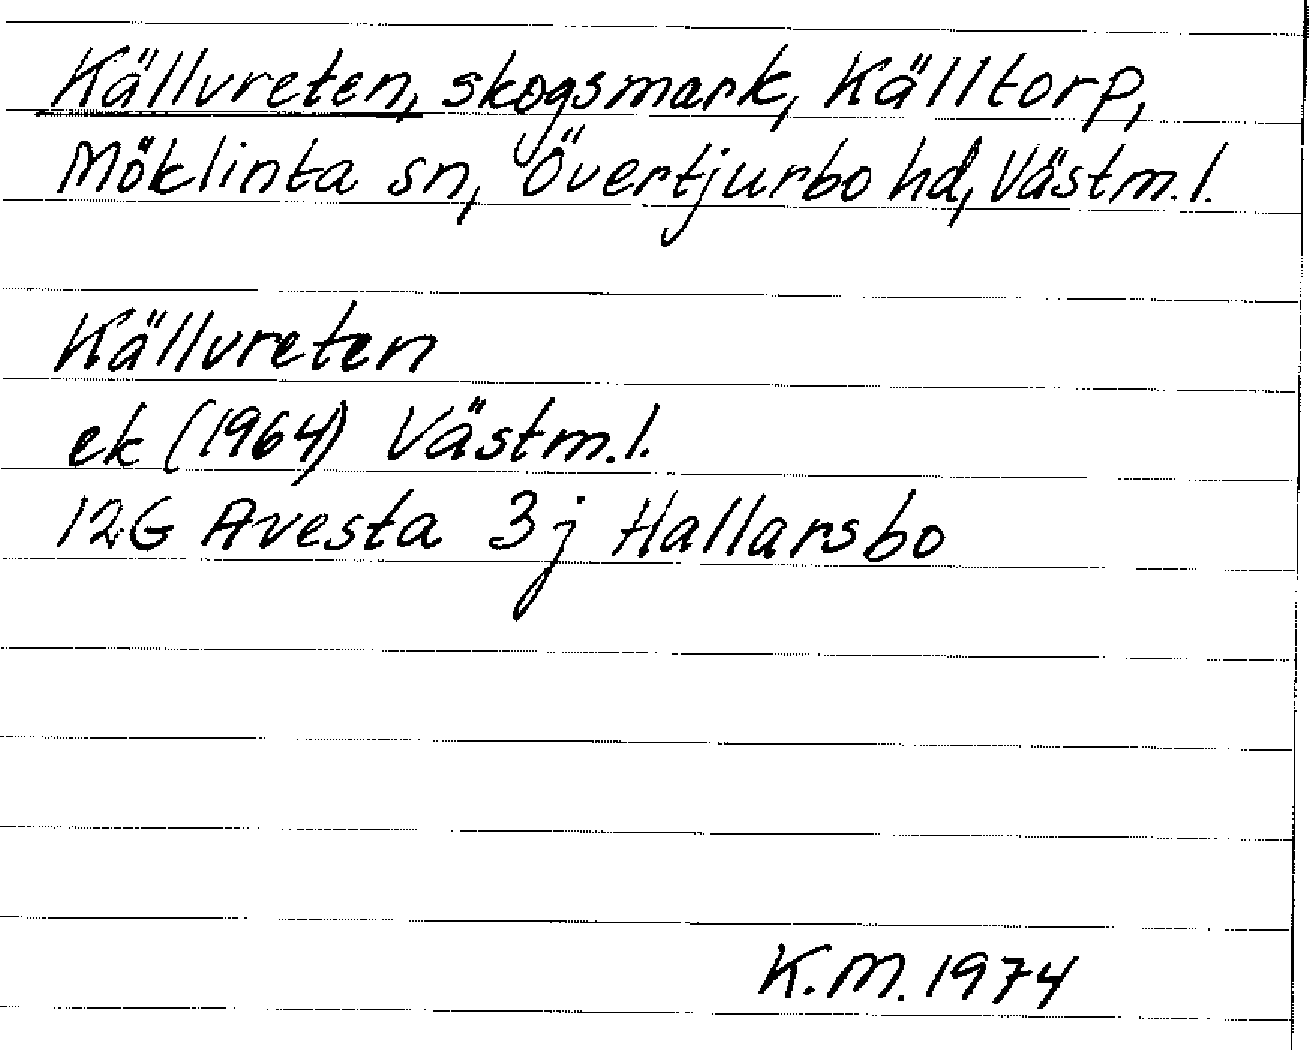 Källvreten, skogsmark, Källtorp,
Möklinta sn, Övertjurbo hd, Västm.l.
Källvreten
ek (1964) Västm.l.
12G Avesta 3j Hallarsbo
K.M. 1974